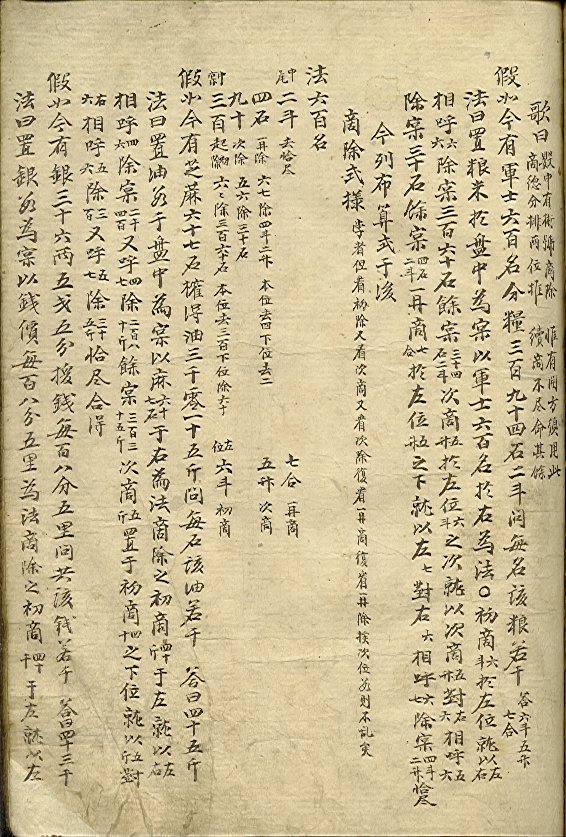 歌曰 數中有術號商除 商總分排兩位推 惟有開方須用此 續商不尽命其餘
假如今有軍士六百名分糧三百九十四石二斗问每名該粮若干 答六斗五升七合
法曰置粮米於盤中為宗以軍士六百名於右為法〇初商六斗於左位就以左右
相呼六六除宗三百六十石餘宗三十四石二斗次商五升於左位六斗之次就以次商五升對右六相呼五六
除宗三十石餘宗四石二斗再商七合於左位五升之下就以左七對右六相呼六七除宗四斗二升恰尽
今列布算式于後
商除式樣 学者但看初除又看次商又看次除復看再商復看再除挨次位数則不乱矣
法六百名
中尾 二斗 去恰尽
四石 再除 六七除四斗二升 本位去四下位去二 七合 再商
九十 次除 五六除三十石 五升 次商
三百 起駒 六六除三百六十石 本位去三百下位除六十 左位 六斗 初商
假如今有芝蔴六十七石榷得油三千零一十五斤问每石該油若干 答曰四十五斤
法曰置油数于盤中為宗以麻六十七石于右為法商除之初商四十斤于左就以左右
相呼四六除宗二千四百又呼四七除二百八十斤餘宗三百三十五斤次商五斤置于初商四十之下位就以五斤對
右六七相呼五六除三百又呼五七除三十五斤恰尽合得
假如今有銀三十六两五戋五分援錢每百八分五里问共該錢若干 答曰四十三千
法曰置銀数為宗以錢價每百八分五里為法商除之初商四十千于左就以左